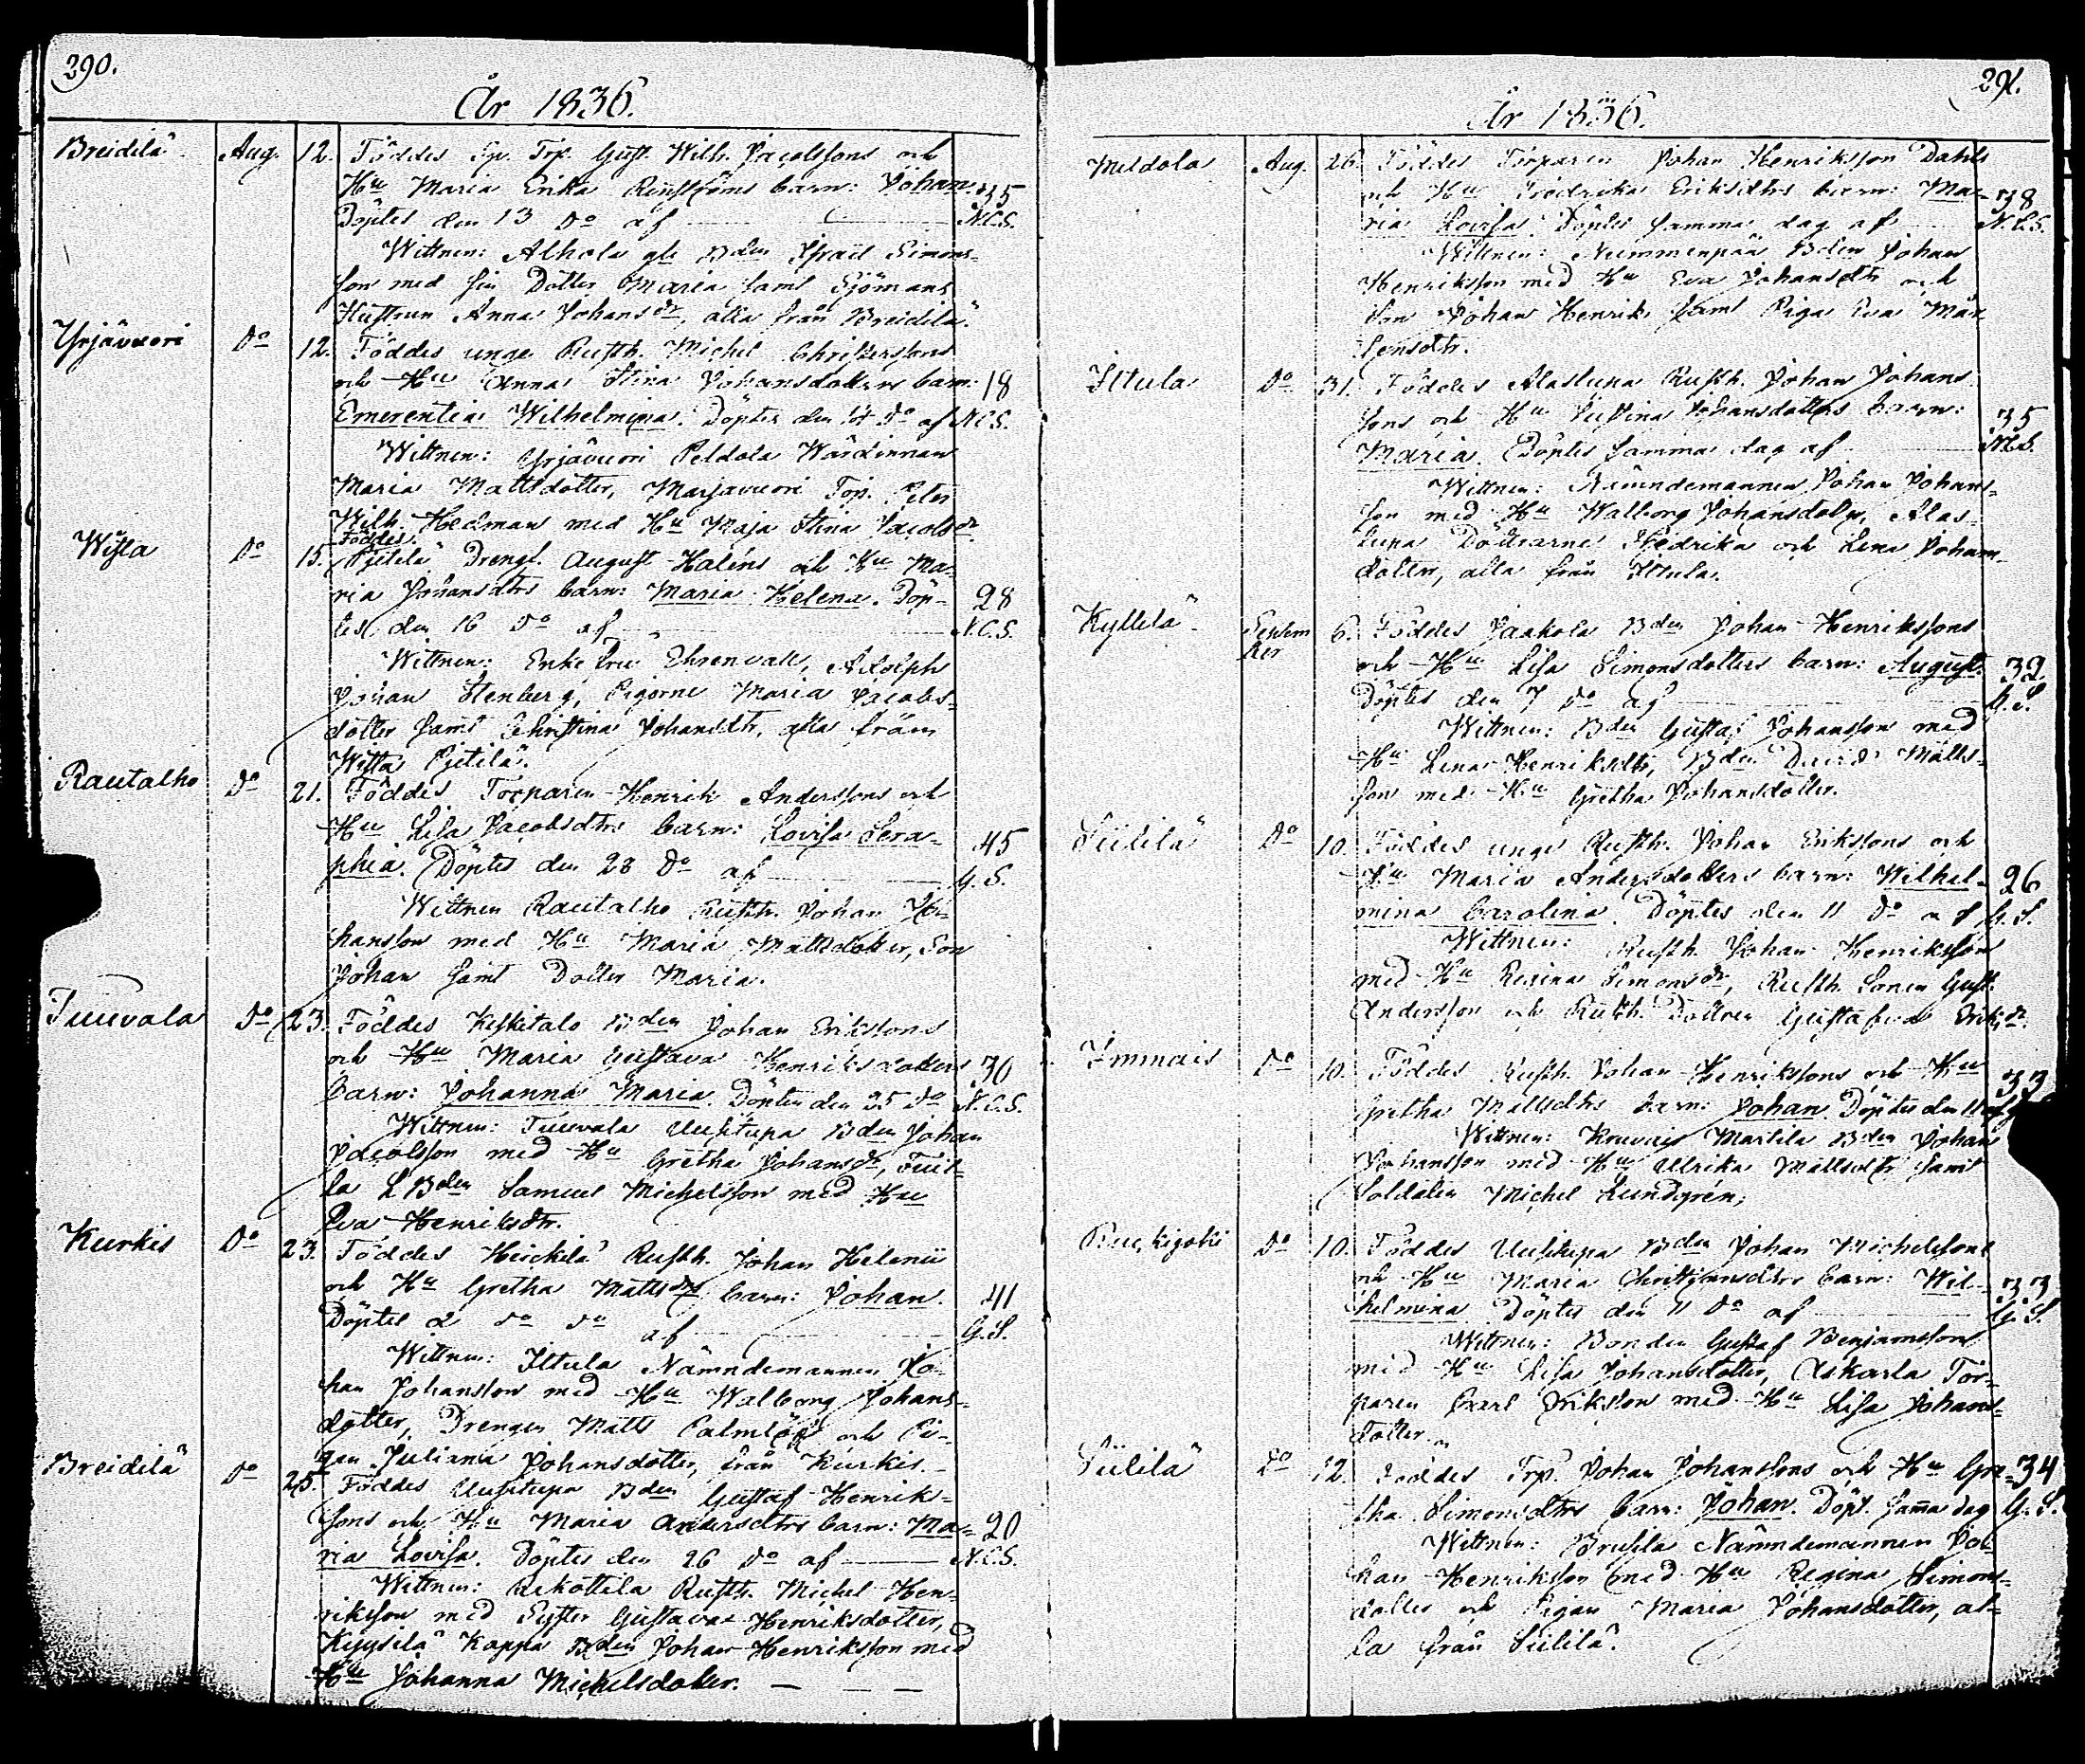 290.
År 1836.
Breidilä Aug. 12. Föddes Sp. Trp. Gust. Wilh. Jacobssons och
Hu Maria Erika barn: Johan. 35
Döptes den 13 do af N.C.S.
Wittnen: Alhola gle Bden Israel Simons-
son med sin Dotter Maria samt Sjömans
Hustrun Anna Johansdr, alla från Breidilä.
Yrjävuori do 12. Föddes unge Rusth. Michel Christerssons
och Hu Anna Stina Johansdotters barn: 18
Emerentia Wilhelmina. Döptes den 14 do af N.C.S.
Wittnen: Yrjävuori Peldola Wärdinnan
Maria Mattsdotter, Marjavuori Trp. Peter
Wilh. Hedman med Hu Maja Stina Jacobsdr.
Wista do 15. Föddes Pjetilä Drengs. August Haléns och Hu Ma-
ria Johansdtrs barn: Maria Helena. Döp- 28
tes den 16 do af N.C.S.
Wittnen: Enke Fru Ehrenvall, Adolph
Johan Stenberg, Pigorne Maria Jacobs-
dotter samt Christina Johansdtr, alla från
Witta Pjetilä.
Rautalho do 21. Föddes Torparen Henrik Anderssons och
Hu Lisa Jacobsdtrs barn: Lovisa Sera- 45
phia. Döptes den 28 do af G.S.
Wittnen Rautalho Rusth. Johan Jo-
hansson med Hu Maria Mattsdotter, Son
Johan samt Dotter Maria.
Tuuvala do 23. Föddes Keskitalo Bden Johan Erikssons
och Hu Maria Gustava Henriksdotters 30
barn: Johanna Maria. Döptes den 25 do N.C.S.
Wittnen: Tuuvala Uusitupa Bden Johan
Jacobsson med Hu Gretha Johansdr, Tuit-
la L Bden Samuel Michelsson med Hu
Eva Henriksdtr.
Kurkis do 23. Föddes Heickilä Rusth. Johan Helenii
och Hu Gretha Mattsdtrs barn: Johan. 41
Döptes d do do af G.S.
Wittnen: Ittula Nämndemannen Jo-
han Johansson med Hu Walborg Johans-
dotter, Drengen Matts Palmlöf och Pi-
gan Juliana Johansdotter, från Kurkis.
Breidilä do 25. Föddes Uusitupa Bden Gustaf Henrik-
sons och Hu Maria Andersdtrs barn: Ma- 20
ria Lovisa. Döptes den 26 do af N.C.S.
Wittnen: Rekottila Rusth. Michel Hen-
riksson med Syster Gustava Henriksdotter,
Kyysilä Kappa Bden Johan Henriksson med
Hu Johanna Michelsdotter.
291.
År 1836.
Meldola Aug. 26. Föddes Torparen Johan Henriksson Dahls
och Hu Fredrika Eriksdtrs barn: Ma- 38
ria Lovisa. Döptes samma dag af N.C.S.
Wittnen: Nummenpää Bden Johan
Henriksson med Hu Eva Johansdtr och
Son Johan Henrik samt Piga Eva Mår-
tensdtr.
Ittula do 31. Föddes Alastupa Rusth. Johan Johans-
sons och Hu Justina Johansdotters barn: 35
Maria. Döptes samma dag af N.C.S.
Wittnen: Nämndemannen Johan Johans-
son med Hu Walborg Johansdotter, Alas-
tupa Döttrarne Hedrika och Lena Johans-
dotter, alla från Ittula.
Kyllilä Septem ber 6. Föddes Jaakola Bden Johan Henrikssons
och Hu Lisa Simonsdotters barn: August. 32
Döptes den 7 do af G.S.
Wittnen: Bden Gustaf Johansson med
Hu Lena Henriksdtr, Bden David Matts-
son med Hu Gretha Johansdotter.
Siililä do 10. Föddes unge Rusth. Johan Erikssons och
Hu Maria Andersdotters barn: Wilhel- 26
mina Carolina. Döptes den 11 do af G.S.
Wittnen: Rusth. Johan Henriksson
med Hu Regina Simonsdr, Rusth. Sonen Gust.
Andersson och Rusth. Dottren Gustafva Eriksdr.
Immais do 10. Föddes Rusth. Johan Henrikssons och Hu 33
Gretha Mattsdtrs barn: Johan. Döptes den 11 af
Wittnen: Martila Bden Johan
Johansson med Hu Ulrika Mattsdtr samt
Soldaten Michel Lundgrén,
do 10. Föddes Uusitupa Bden Johan Michelssons
och Hu Maria Christjansdtrs barn: Wil- 33
helmina. Döptes den 11 do af G.S.
Wittnen: Bonden Gustaf Benjamsson
med Hu Lisa Johansdotter, Askarla Tor-
paren Carl Eriksson med Hu Lisa Johans-
dotter.
Siililä do 12. Föddes Trp. Johan Johanssons och Hu Gre- 34
tha Simonsdtrs barn: Johan. Döpt. samma dag G.S.
Wittnen: Brusila Nämndemannen Jo-
han Henriksson med Hu Regina Simons-
dotter och Pigan Maria Johansdotter, al-
la från Siililä.